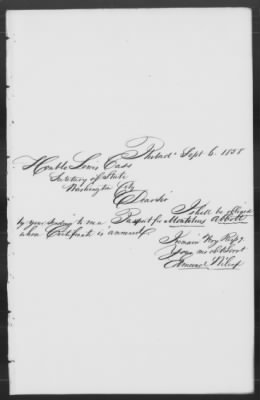 Philad. Sept 6. 1858
Honble Lewis Cass
Secretary of State
Washington City
Dear Sir
I shall be obliged
by your sending to me a Passport for Montelius Abbott
whose Certificate is annexed.
I remain Very Resp.y
Your mo obt servt
Edmund Wilcox